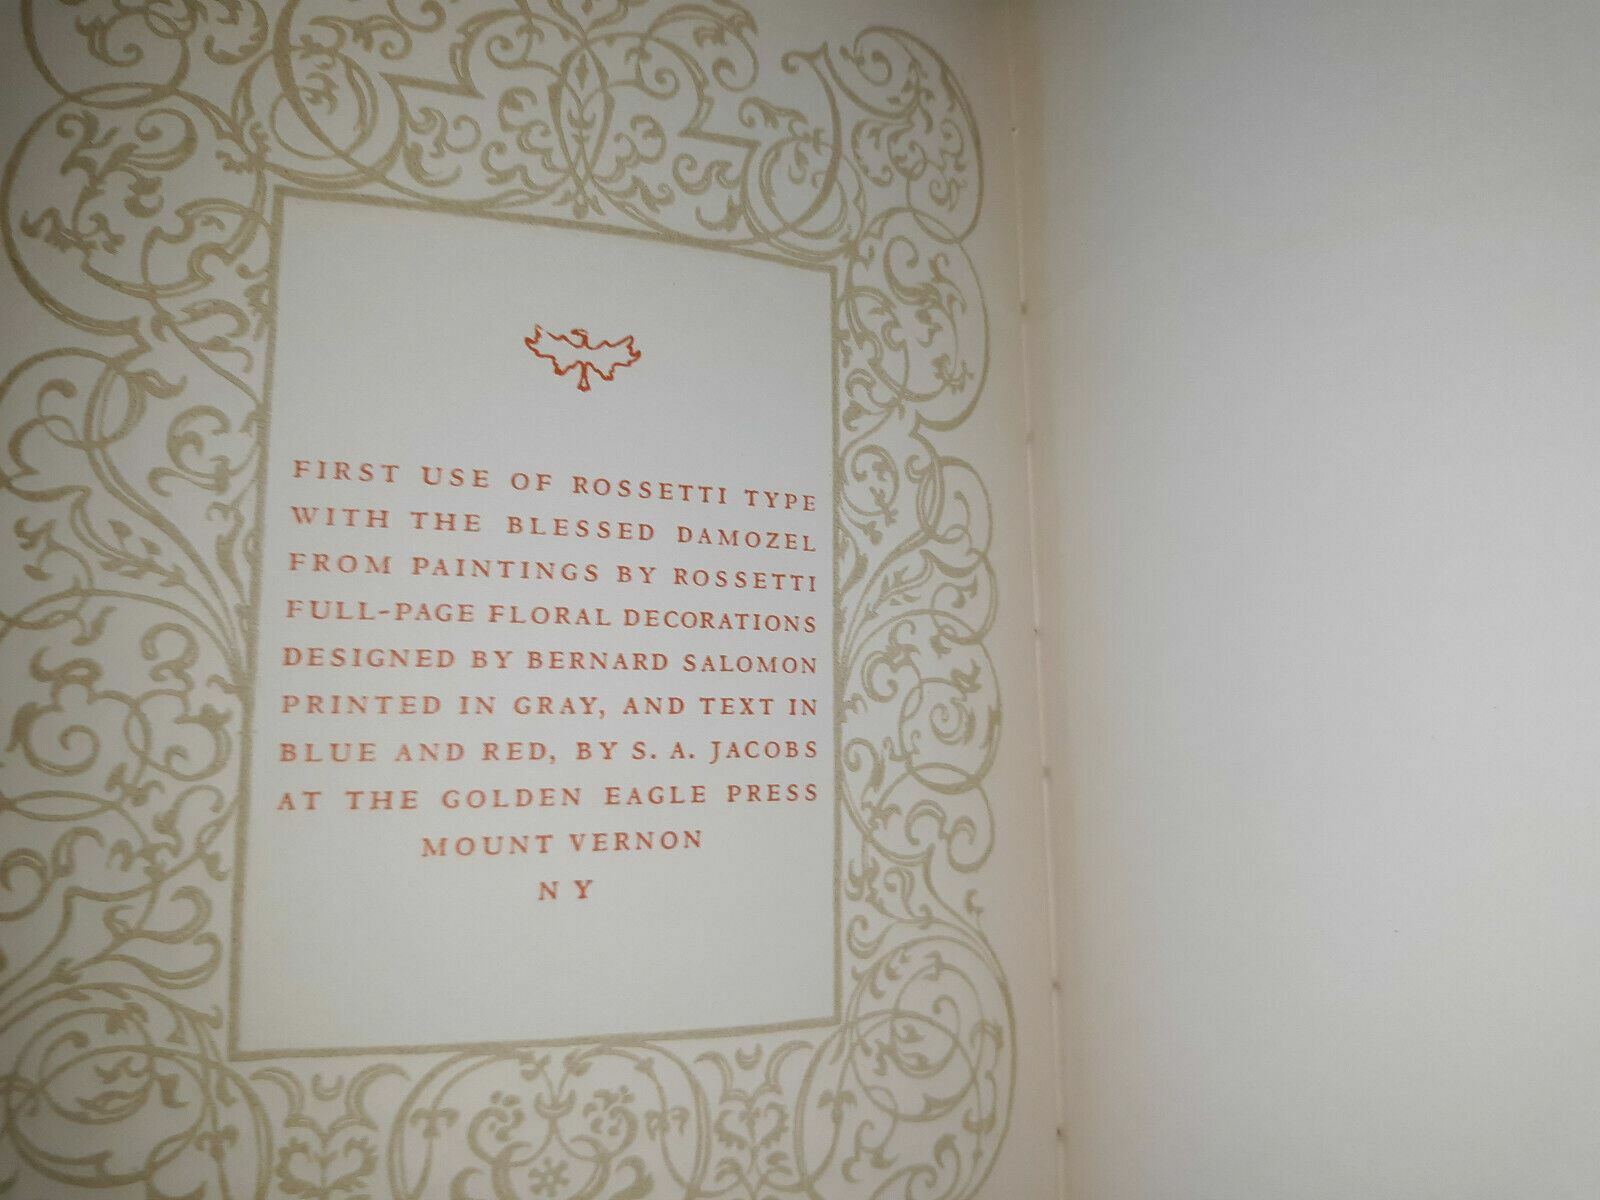 FIRST USE OF ROSSETTI TYPE
WITH THE BLESSED DAMOZEL
FROM PAINTINGS BY ROSSETTI
FULL-PAGE FLORAL DECORATIONS
DESIGNED BY BERNARD SALOMON
PRINTED IN GRAY, AND TEXT IN
BLUE AND RED, BY S. A. JACOBS
AT THE GOLDEN EAGLE PRESS
MOUNT VERNON
N Y